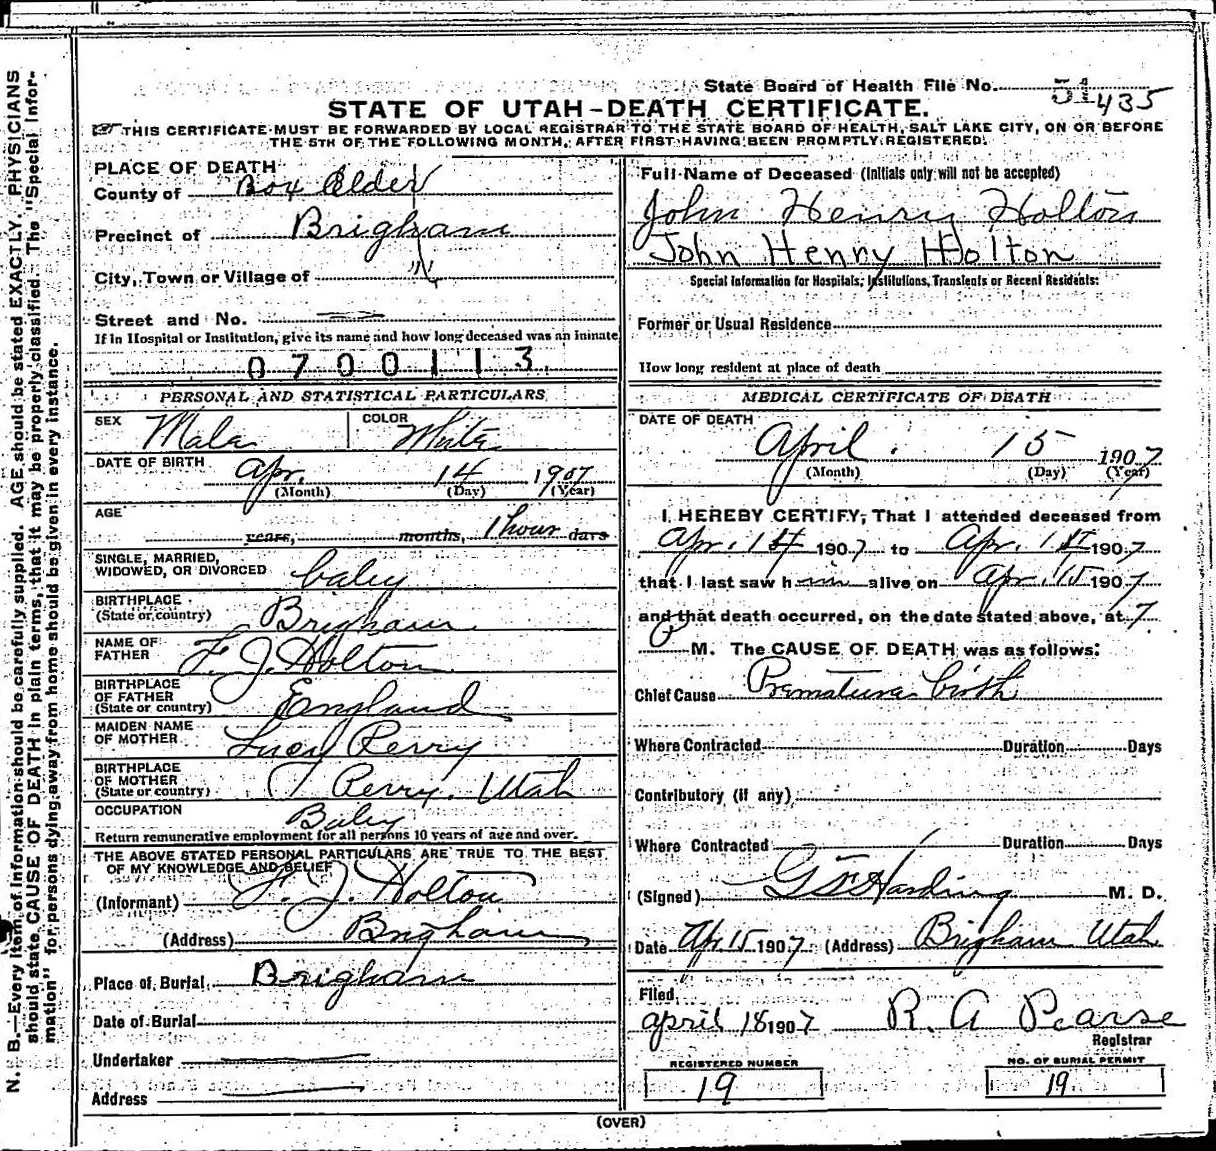 State Board of Health File No. 51 435
STATE OF UTAH-DEATH CERTIFICATE.
THIS CERTIFICATE MUST BE FORWARDED BY LOCAL REGISTRAR TO THE STATE BOARD OF HEALTH, SALT LAKE CITY, ON OR BEFORE
THE 5TH OF THE FOLLOWING MONTH, AFTER FIRST HAVING BEEN PROMPTLY REGISTERED.
PLACE OF DEATH
County of Box Elder
Precinct of Brigham
City, Town or Village of "
Street and No.
If in Hospital or Institution, give its name and how long deceased was an inmate
0700113
PERSONAL AND STATISTICAL PARTICULARS
SEX Male COLOR White
DATE OF BIRTH Apr. 14 1907
(Month) (Day) (Year)
AGE
years, months, 1 hour days
SINGLE, MARRIED,
WIDOWED, OR DIVORCED baby
BIRTHPLACE
(State or country) Brigham
NAME OF
FATHER F. J. Holton
BIRTHPLACE
OF FATHER
(State or country) England
MAIDEN NAME
OF MOTHER Lucy Perry
BIRTHPLACE
OF MOTHER
(State or country) Perry, Utah
OCCUPATION Baby
Return remunerative employment for all persons 10 years of age and over.
THE ABOVE STATED PERSONAL PARTICULARS ARE TRUE TO THE BEST
OF MY KNOWLEDGE AND BELIEF
(Informant) F. J. Holton
(Address) Brigham
Place of Burial Brigham
Date of Burial
Undertaker
Address
Full Name of Deceased (Initials only will not be accepted)
John Henry Holton
John Henry Holton
Special Information for Hospitals, Institutions, Transients or Recent Residents:
Former or Usual Residence
How long resident at place of death
MEDICAL CERTIFICATE OF DEATH
DATE OF DEATH
April 15 1907
(Month) (Day) (Year)
I HEREBY CERTIFY, That I attended deceased from
Apr. 14 1907 to Apr. 1907
that I last saw him alive on Apr. 15 1907
and that death occurred, on the date stated above, at 7
P M. The CAUSE OF DEATH was as follows:
Chief Cause Premature birth
Where Contracted Duration Days
Contributory (if any)
Where Contracted Duration Days
(Signed) Harding M. D.
Date Apr 15 1907 (Address) Brigham Utah
Filed,
april 18 1907 R. A Pearse
Registrar
REGISTERED NUMBER
19
NO. OF BURIAL PERMIT
19
(OVER)
N. B.—Every item of information should be carefully supplied. AGE should be stated EXACTLY. PHYSICIANS
should state CAUSE OF DEATH in plain terms, that it may be properly classified. The "Special Infor-
mation" for persons dying away from home should be given in every instance.